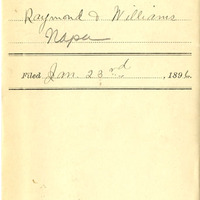 Raymond & Williams
Napa
Filed Jan 23rd, 1896.